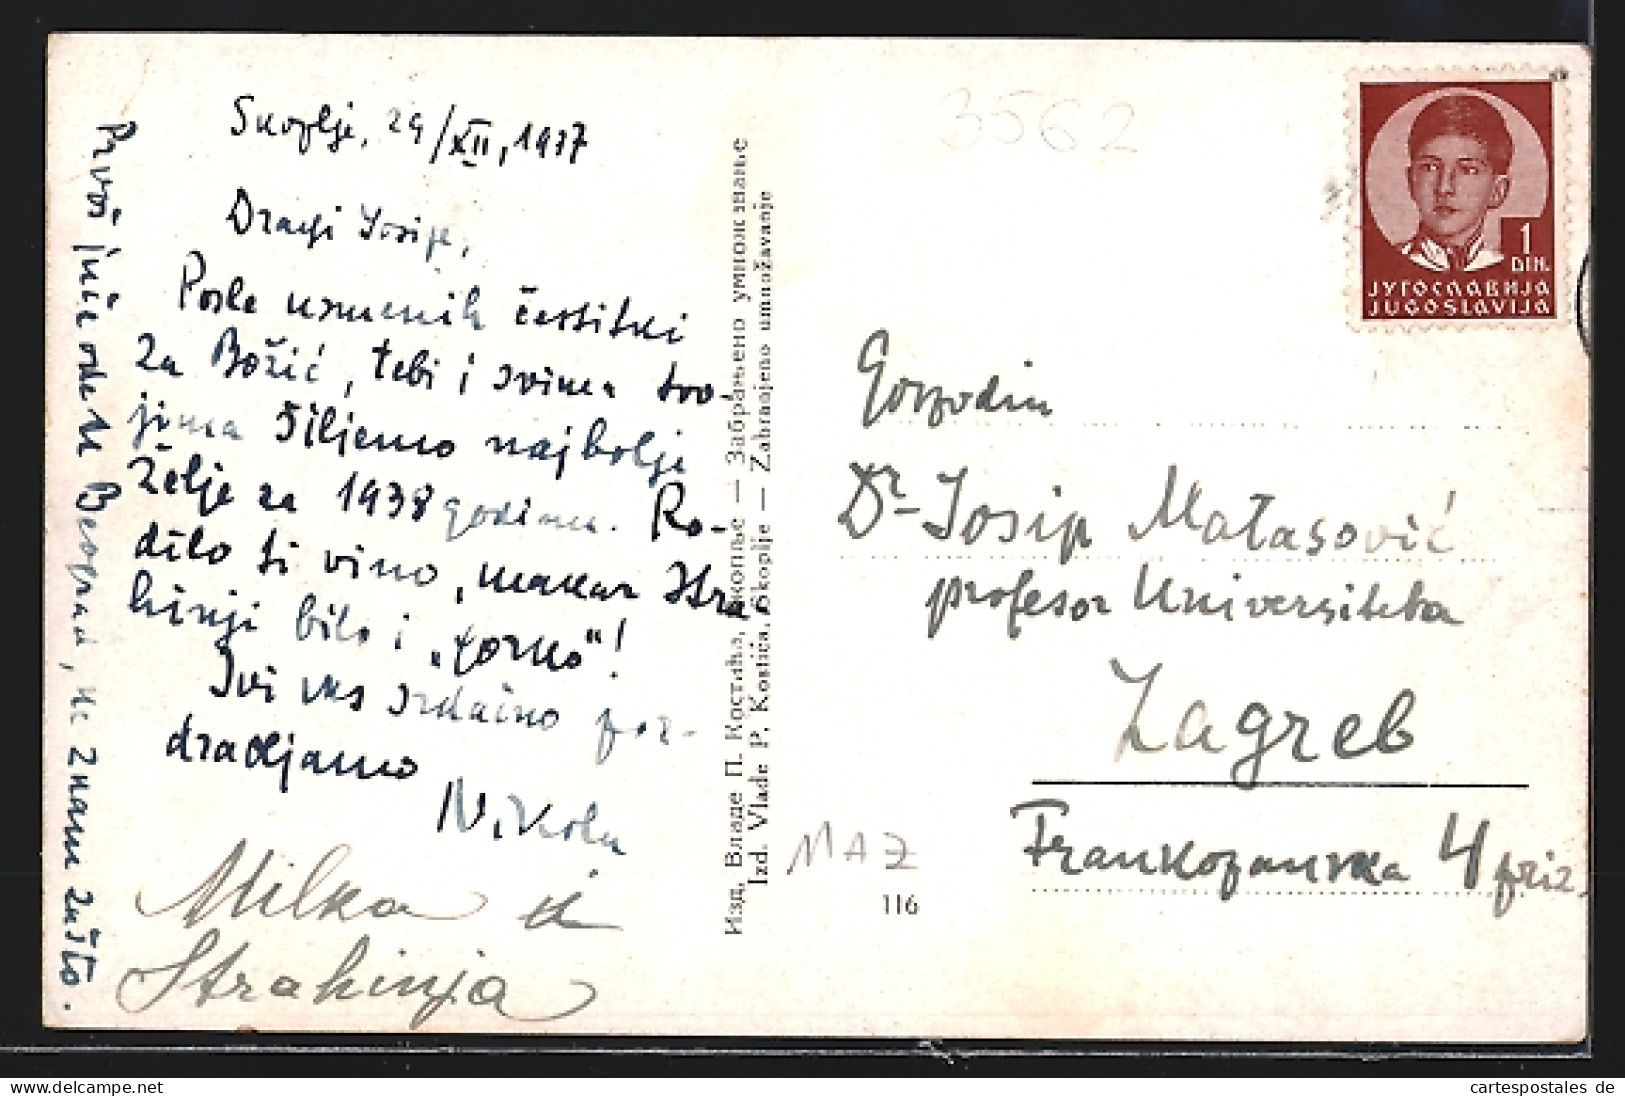 Skoplje, 29/XII, 1937
Dragi Josipe,
Posle usmenih čestitki
za Božić, tebi i svima tvo-
jima šiljemo najbolje
želje za 1938 godinu. Ro-
dilo ti vino, makar Stra-
hinji bilo i „gorko“!
Svi vas srdačno poz-
dravljamo
Nikola
Milka i
Strahinja
Beograd, ne znam zašto.
Изд. Владе П. Костића, Скопље — Забрањено умножавање
Izd. Vlade P. Kostića, Skoplje — Zabranjeno umnožavanje
3562
1
DIN.
ЈУГОСЛАВИЈА
JUGOSLAVIJA
Gospodin
Dr Josip Matasović
profesor Univerziteta
Zagreb
Frankopanska 4 priz.
MAZ
116
www.cartespostales.de
cartespostales de